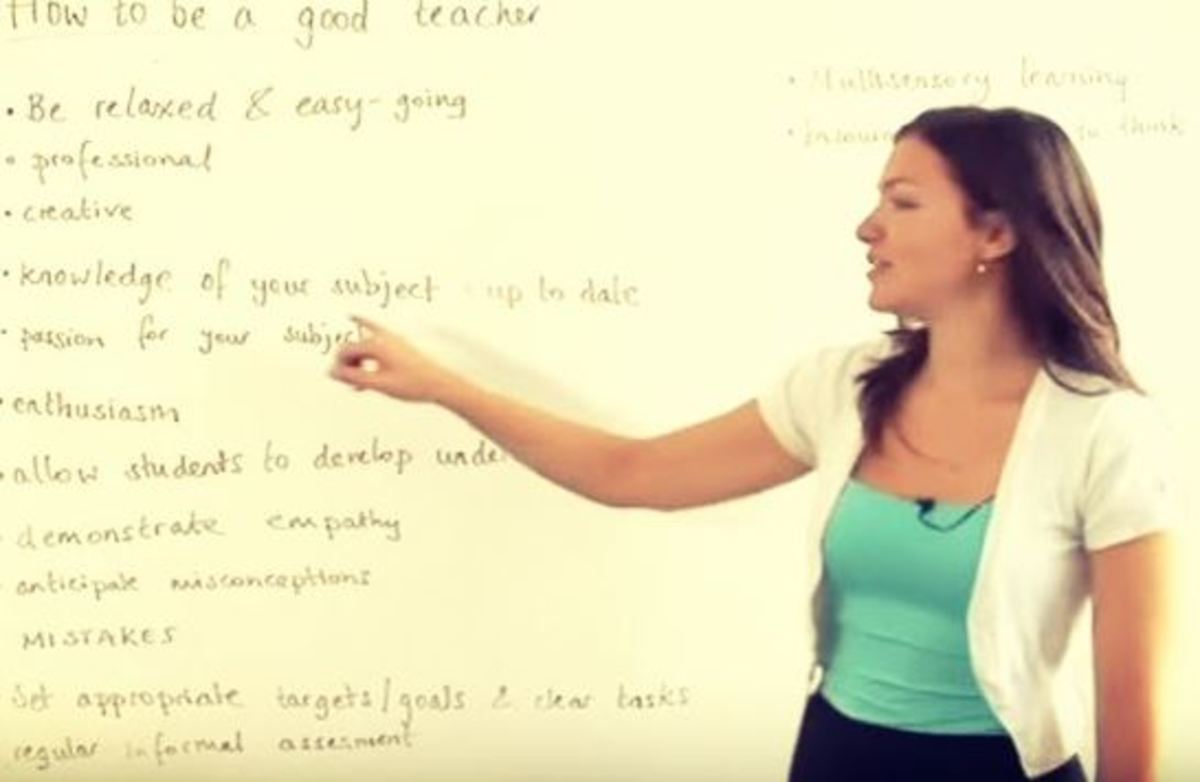 How to be a good teacher
• Be relaxed & easy-going
• professional
• creative
• knowledge of your subject - up to date
• passion for your subject
• enthusiasm
• allow students to develop unde
demonstrate empathy
anticipate misconceptions
MISTAKES
Set appropriate targets/goals & clear tasks
regular informal assesment
• Multisensory learning
• think